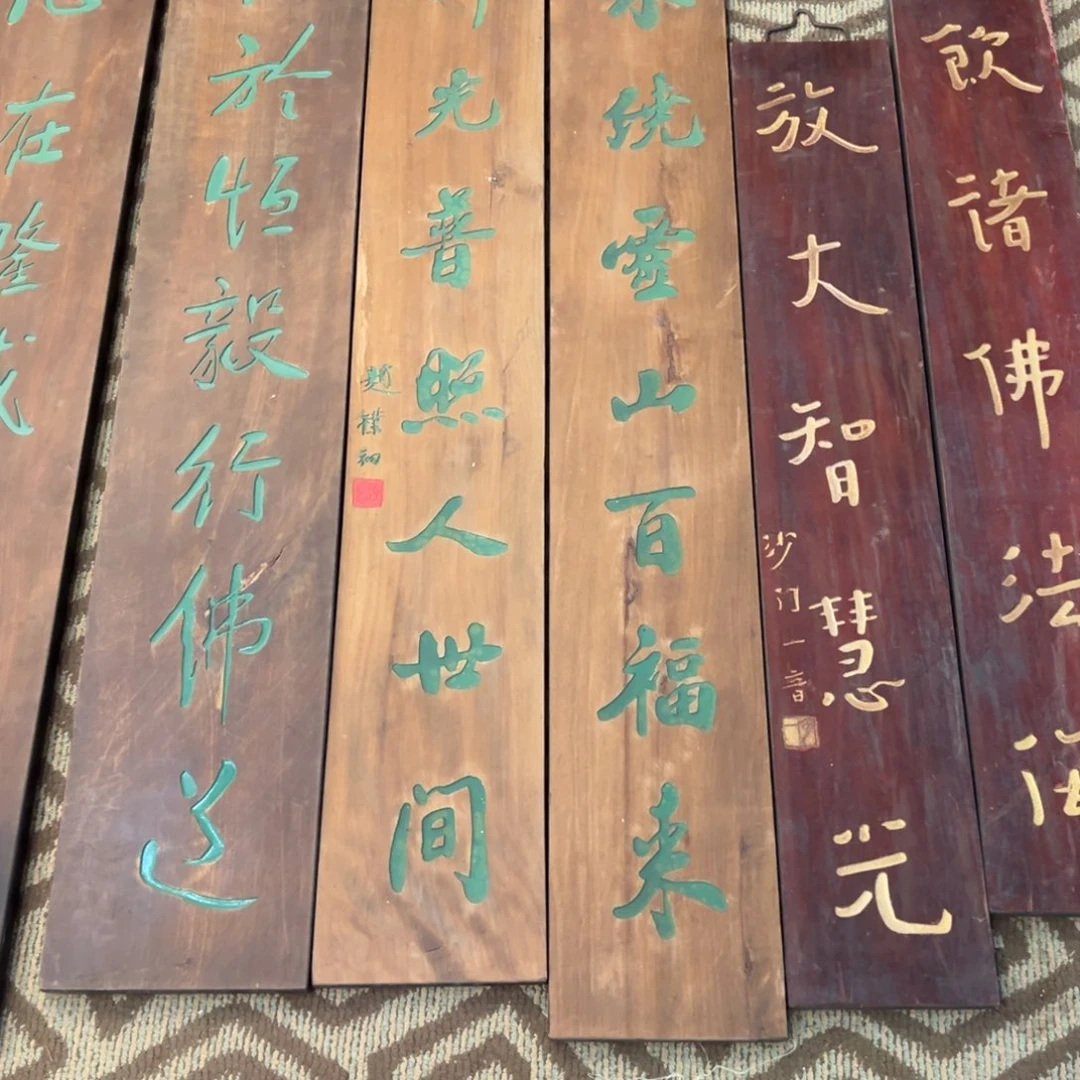 飲諸佛法海
放大智慧光
沙门一音
绕靈山百福来
光普照人世间
趙樸初
於恒毅行佛道
在隆